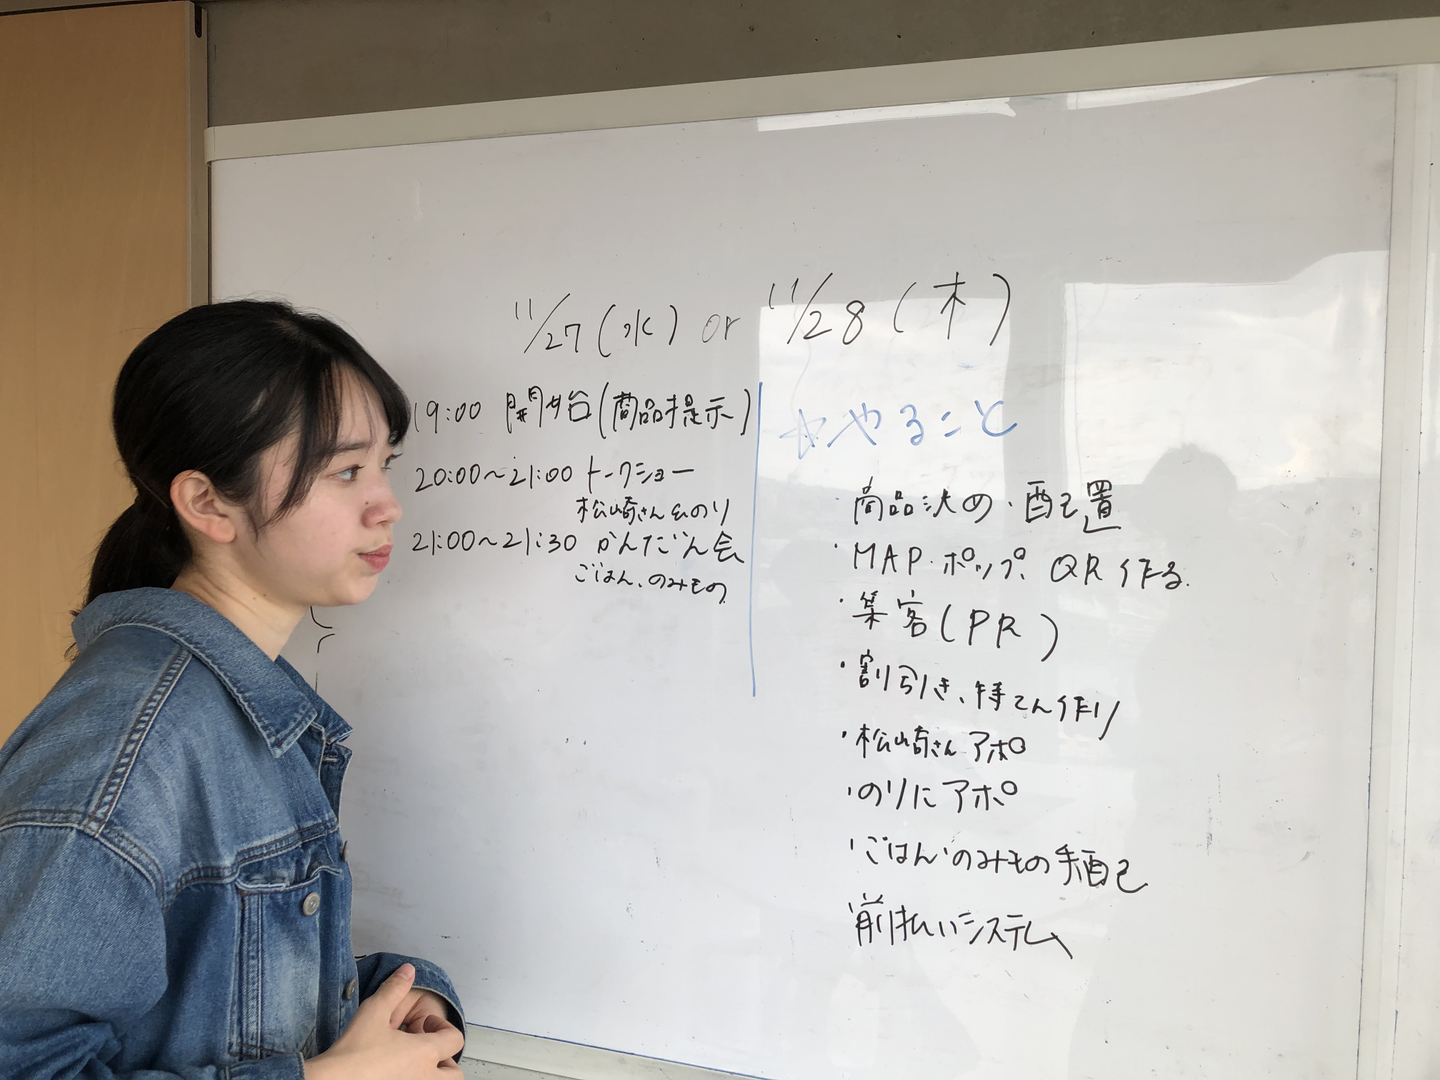 11/27(水) or 11/28(木)
19:00 開始(商品提示)
20:00〜21:00 トークショー
松崎さん&のり
21:00〜21:30 かんだん会
ごはん、のみもの
☆やること
・商品決め・配置
・MAP・ポップ、QR作る
・集客(PR)
・割引き、特てん作り
・松崎さんアポ
・のりにアポ
・ごはん・のみもの手配
・前払いシステム